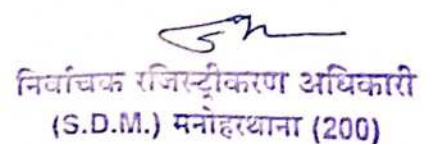 निर्वाचक रजिस्ट्रीकरण अधिकारी
(S.D.M.) मनोहरथाना (200)